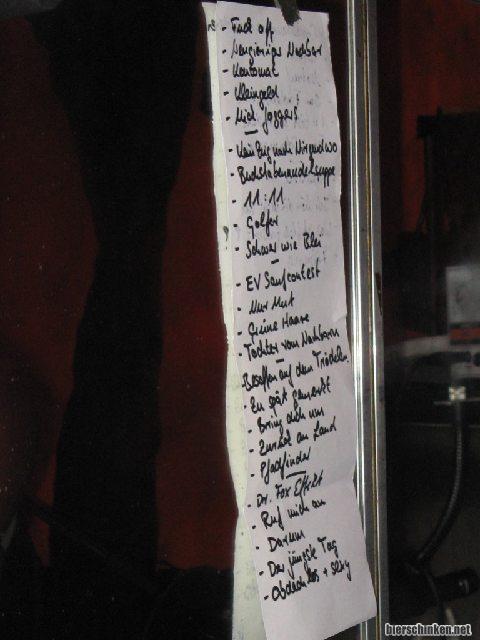 - Fuck off
- Neugieriger Nachbar
- Konsomat
- Kleingeld
- Mich Joggers
- Kein Zug nach Nirgendwo
- Buchstabennudelsuppe
- 11:11
- Golfer
- Schwer wie Blei
- EV Saufcontest
- Nur Mut
- Grüne Haare
- Tochter vom Nachbarn
Besoffen auf dem Trödeln
- Zu spät gemerkt
- Bring dich um
- Zurück an Land
- Pfadfinder
- Dr. Fox Effekt
- Ruf mich an
- Darum
- Der jüngste Tag
- Obdachlos + sexy
bierschinken.net